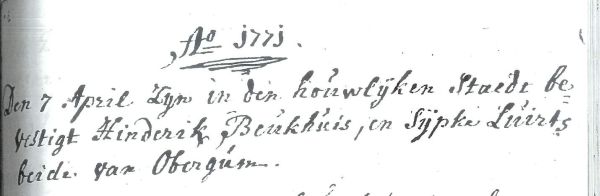 Ao 1771.
Den 7 April Zyn in den houwlyken Staede be=
vestigt Hinderik Beukhuis, en Sijpke Luirts
beide van Obergum.